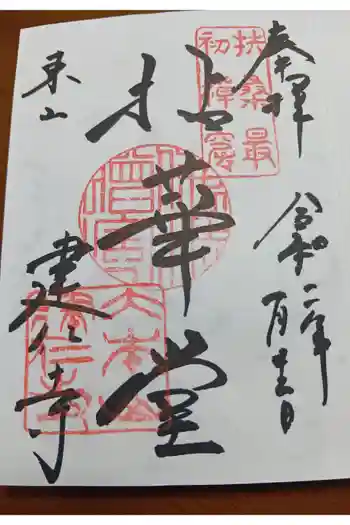 奉拝
令和二年
一月十三日
扶桑最
初禪窟
拈華堂
東山
建仁寺
大本山
建仁寺